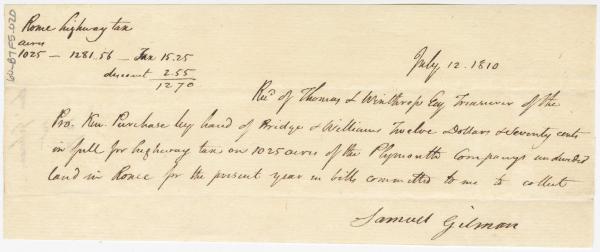 Rome highway tax
acres
1025 — 1281.56 — Tax 15.25
discount 2.55
12.70
July 12. 1810
Recd of Thomas L Winthrop Esq Treasurer of the
Pro. Ken. Purchase by hand of Bridge & Williams Twelve Dollars & Seventy cents
in full for highway tax on 1025 acres of the Plymouth Companys undivided
land in Rome for the present year in bills committed to me to collect
Samuel Gilman